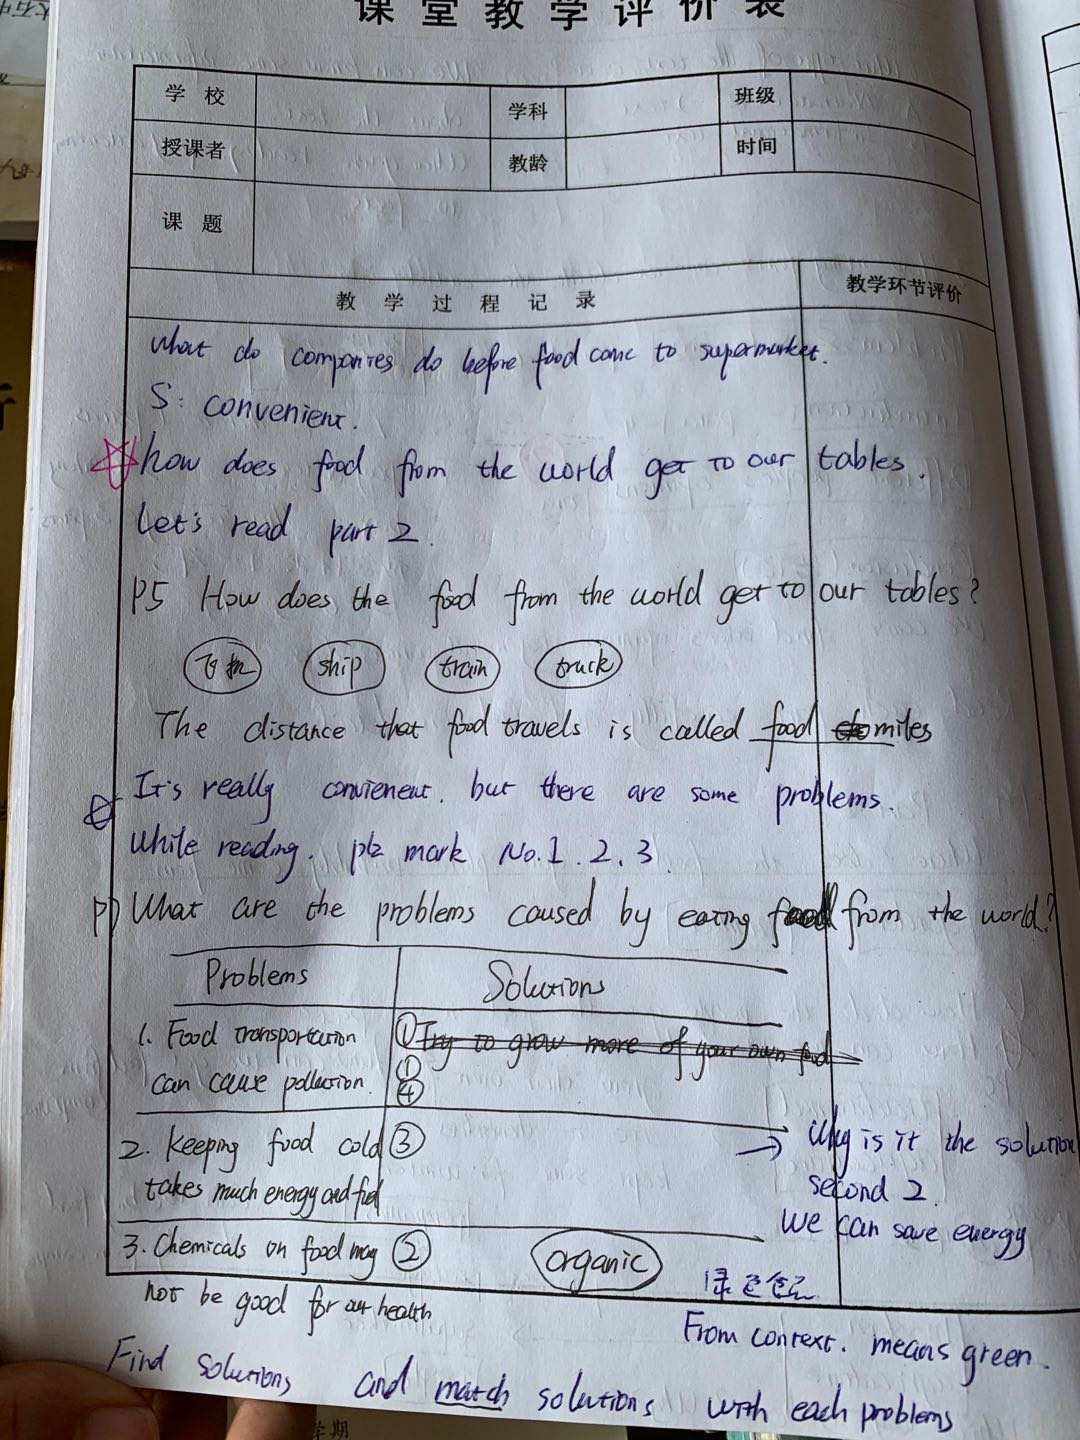 课堂教学评价表
学校 学科 班级
授课者 教龄 时间
课题
教学过程记录 教学环节评价
What do companies do before food come to supermarket.
S: convenient.
how does food from the world get to our tables.
Let's read part 2.
P5 How does the food from the world get to our tables?
飞机 ship train truck
The distance that food travels is called food miles
It's really convienent. but there are some problems.
While reading. plz mark No.1.2.3
What are the problems caused by eating food from the world?
Problems Solutions
1. Food transportation ① Try to grow more of your own food
can cause pollution. ①
④
2. Keeping food cold ③ → Why is it the solution
takes much energy and fuel second 2.
We can save energy
3. Chemicals on food may ② organic 绿色食品
not be good for our health
From context. means green.
Find solutions and match solutions with each problems
学期